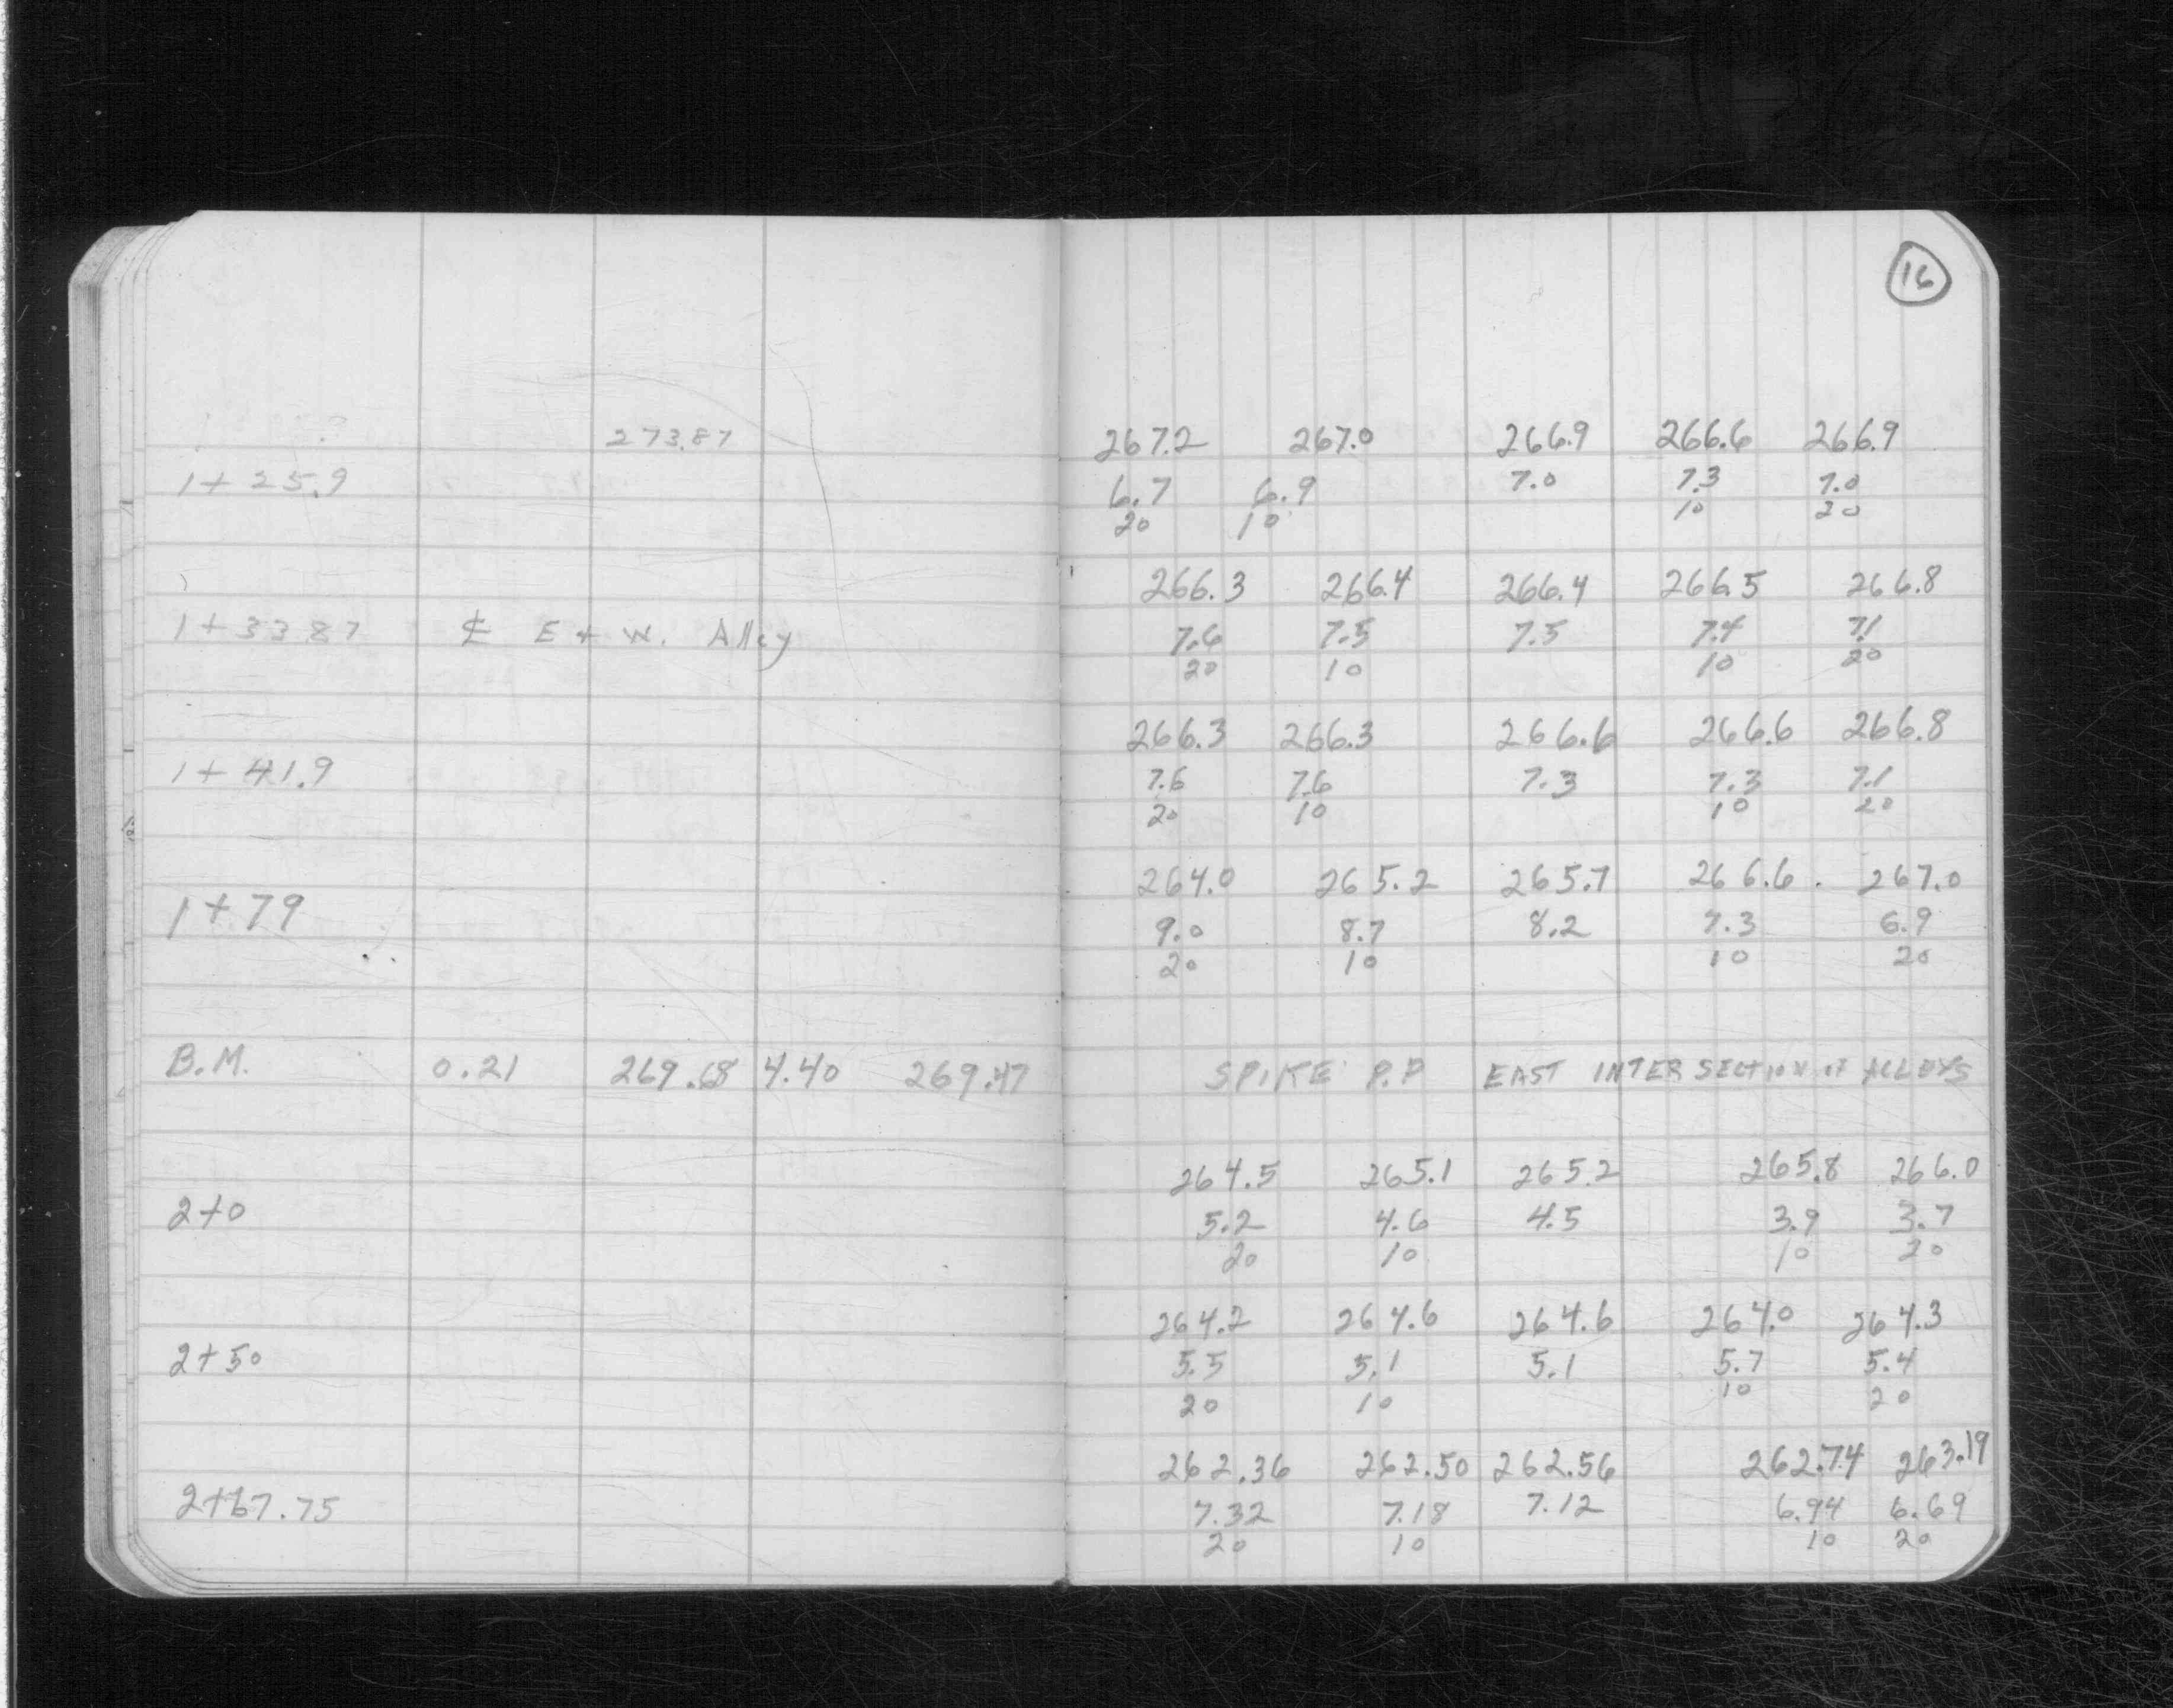 16
273.87 267.2 267.0 266.9 266.6 266.9
1+25.9 6.7 6.9 7.0 7.3 7.0
20 10 10 20
266.3 266.4 266.4 266.5 266.8
1+33.87 ⅊ E + W. Alley 7.6 7.5 7.5 7.4 7.1
20 10 10 20
266.3 266.3 266.6 266.6 266.8
1+41.9 7.6 7.6 7.3 7.3 7.1
20 10 10 20
264.0 265.2 265.7 266.6 267.0
1+79 9.0 8.7 8.2 7.3 6.9
20 10 10 20
B.M. 0.21 269.68 4.40 269.47 SPIKE P.P EAST INTERSECTION OF ALLEYS
264.5 265.1 265.2 265.8 266.0
2+0 5.2 4.6 4.5 3.9 3.7
20 10 10 20
264.2 264.6 264.6 264.0 264.3
2+50 5.5 5.1 5.1 5.7 5.4
20 10 10 20
262.36 262.50 262.56 262.74 263.19
2+67.75 7.32 7.18 7.12 6.94 6.69
20 10 10 20